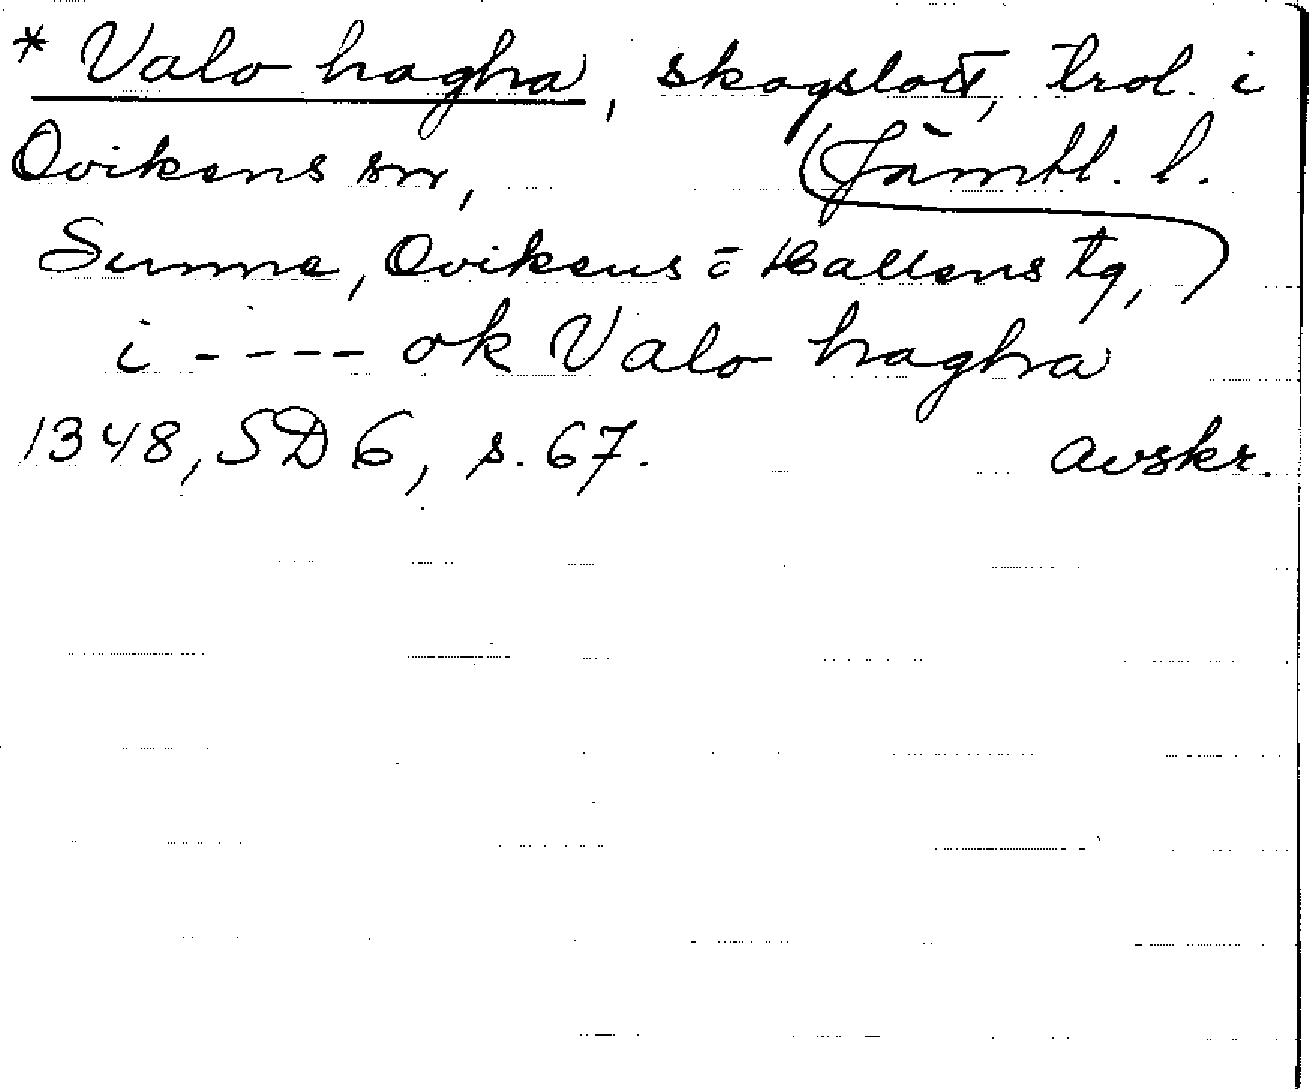 * Valo hagha, skogslott, trol. i
Ovikens sn, (Jämtl. l.
Sunne, Ovikens o Hallens tg,)
i ---- ok Valo hagha
1348, SD 6, s. 67. avskr.